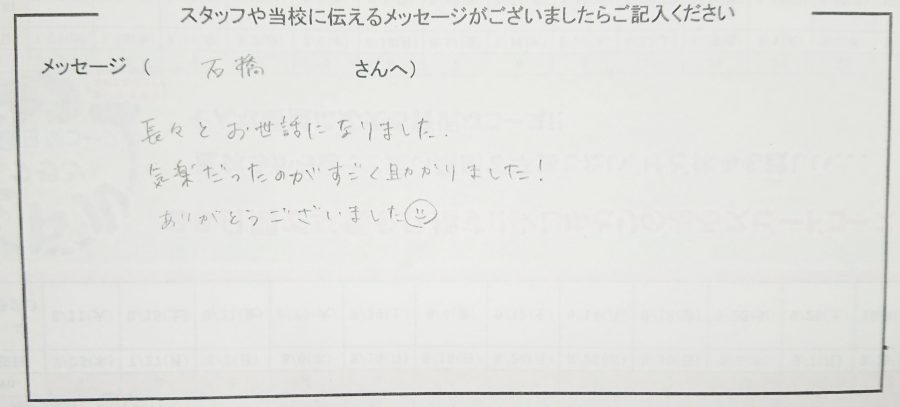 スタッフや当校に伝えるメッセージがございましたらご記入ください
メッセージ ( 石橋 さんへ)
長々とお世話になりました.
気楽だったのがすごく助かりました!
ありがとうございました☺